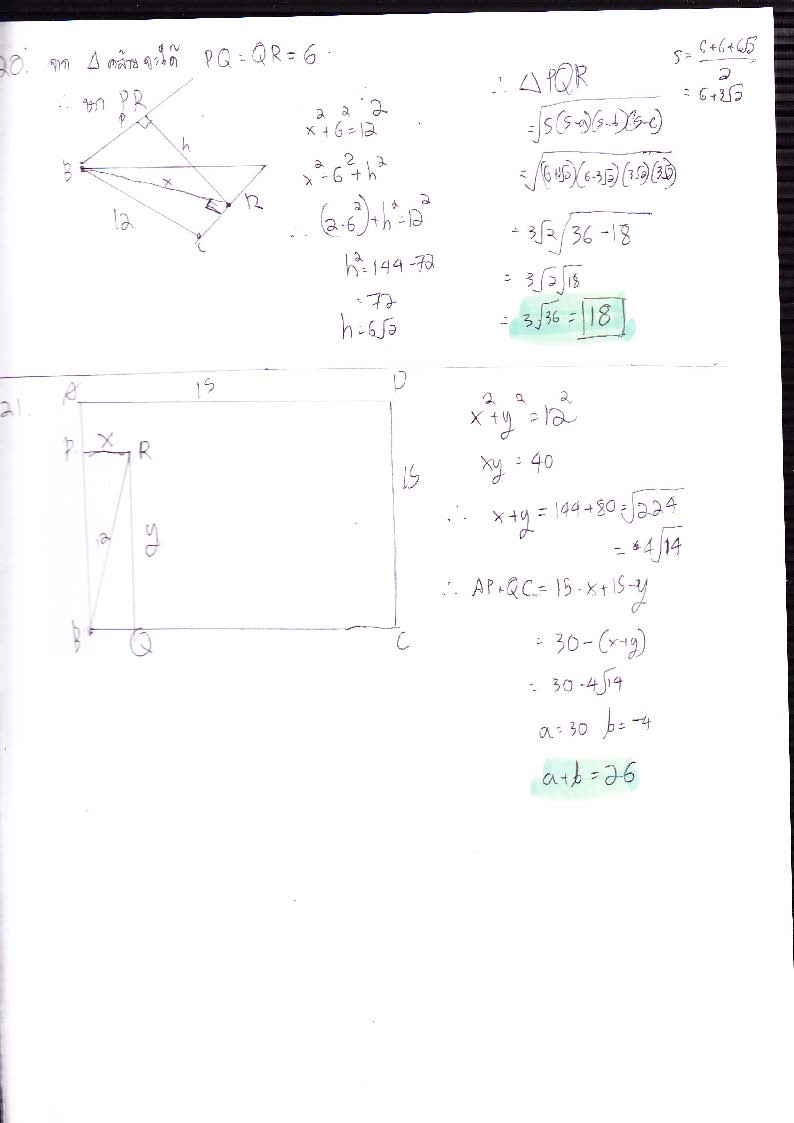 20. จาก Δ คล้ายจะได้ PQ = QR = 6
∴ หา PR
P
h
B
x
R
12
C
x² + 6² = 12²
x² = 6² + h²
∴ (2·6²) + h² = 12²
h² = 144 - 72
= 72
h = 6√2
∴ Δ PQR
= √S(S-a)(S-b)(S-c)
= √(6+3√2)(6-3√2)(3√2)(3√2)
= 3√2 √36 - 18
= 3√2 √18
= 3√36 = 18
S = 6+6+6√2 / 2
= 6+3√2
21.
A 15 D
P x R
15
12
y
B Q C
x² + y² = 12²
xy = 40
∴ x+y = 144 + 80 = √224
= 4√14
∴ AP+QC = 15-x+15-y
= 30-(x+y)
= 30-4√14
a = 30 b = -4
a+b = 26